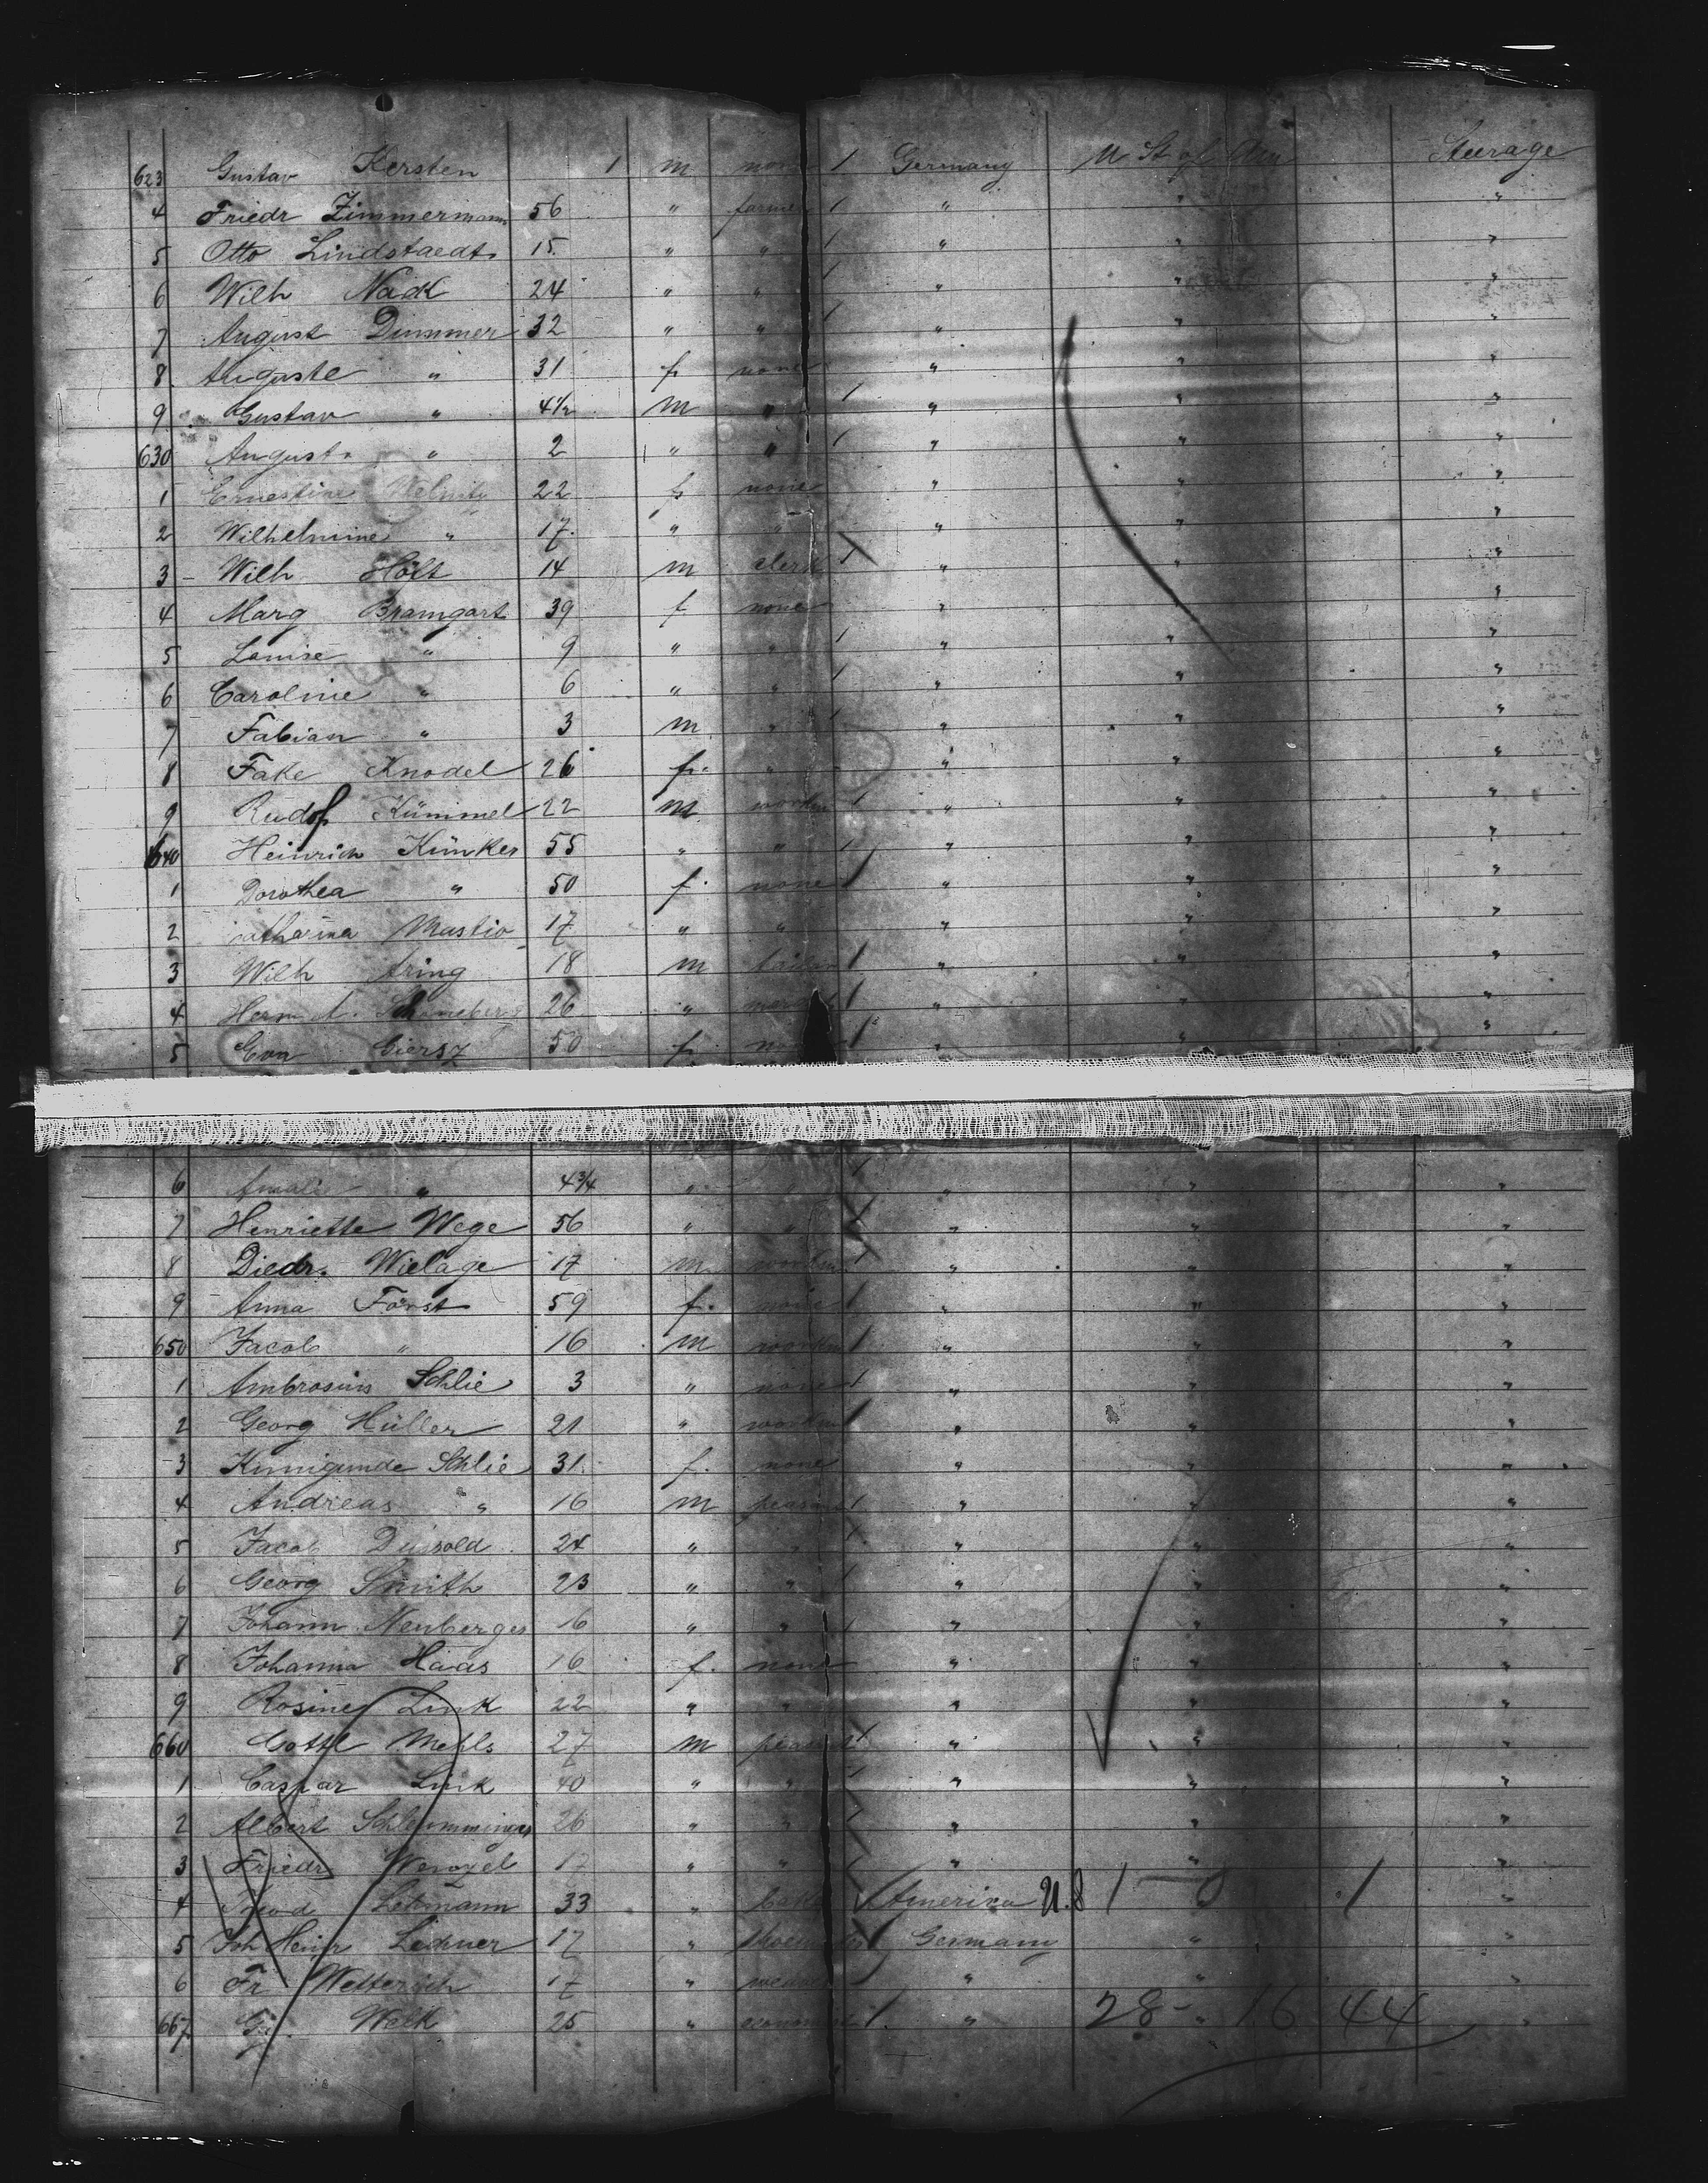 623 Gustav Kersten 1 m none 1 Germany U St of Am Steerage
4 Friedr Zimmermann 56 " farmer 1 " " "
5 Otto Lindstaedt 15 " " 1 " " "
6 Wilh Nack 24 " " 1 " " "
7 August Dummer 32 " " 1 " " "
8 Auguste " 31 f none " " "
9 Gustav " 4½ m " 1 " " "
630 August " 2 " " 1 " " "
1 Ernestine 22 f none " " "
2 Wilhelmine " 17 " " " " "
3 Wilh Hölt 14 m clerk 1 " " "
4 Marg Bramgart 39 f none " " "
5 Louise " 9 " " 1 " " "
6 Caroline " 6 " " 1 " " "
7 Fabian " 3 m " 1 " " "
8 Fake Knodel 26 f. " " " "
9 Rudolf Kümmel 22 m workm 1 " " "
640 Heinrich Künker 55 " " 1 " " "
1 Dorothea " 50 f. none 1 " " "
2 Catharina 17 " " " " "
3 Wilh Aring 18 m 1 " " "
4 Herm A. Schöneberg 26 " 1 " " "
5 Eva Ciersz 50 f. none 1 " " "
6 Amalie " 4¾ " " 1 " " "
7 Henriette Wege 56 " " " " "
8 Diedr. Wielage 17 m workm 1 " " "
9 Anna Forst 59 f. none 1 " " "
650 Jacob " 16 m workm 1 " " "
1 Ambrosius Schlie 3 " none 1 " " "
2 Georg Hüller 21 " workm 1 " " "
3 Kunigunde Schlie 31 f. none " " "
4 Andreas " 16 m peasant 1 " " "
5 Jacob 24 " " 1 " " "
6 Georg Smith 23 " " 1 " " "
7 Johann Neuberger 16 " " 1 " " "
8 Johanna Haas 16 f. none " " "
9 Rosine Link 22 " " " " "
660 Gottl Mehls 27 m peasant 1 " " "
1 Caspar Link 40 " " 1 " " "
2 Albert Schlemminger 26 " " " " "
3 Friedr Wenzel 17 " " " " "
4 Lehmann 33 " America U.S 1 — 0 1 "
5 Joh Heinr Lechner 17 " Germany " "
6 Fr Wetterich 17 " " " "
667 Welk 25 " 1 " 28 - 16 44 "